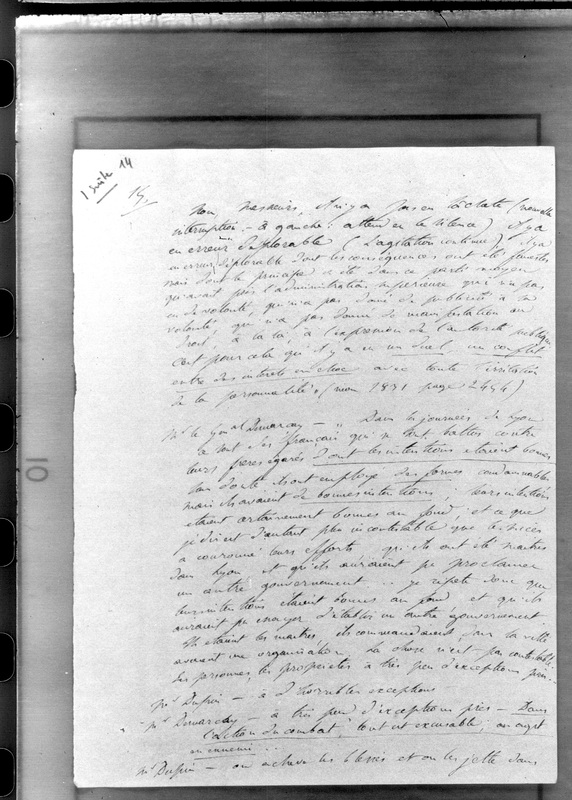 1 suite 14
14.
Non messieurs, il n'y a pas eu (nouvelle
interruption. — à gauche : attendez le silence) il y a
eu erreur déplorable (L'agitation continue), il y a
eu erreur déplorable dont les conséquences ont été funestes
mais dont le principe a été dans ce parti moyen
qu'avait pris l'administration supérieure qui n'a pas
eu de volonté, qui n'a pas donné de publicité à sa
volonté, qui n'a pas donné de manifestation au
droit, à la loi, à l'expression de l'autorité publique
C'est pour cela qu'il y a eu un duel, un conflit
entre des intérêts en choc avec toute l'irritation
de la personnalité » (mon 1831 page 2454)
Mr le Gral Demarçay — " Dans les journées de Lyon
ce sont des français qui se sont battus contre
leurs frères égarés dont les intentions étaient bonnes
sans doute ils ont employé des formes condamnables
mais ils avaient de bonnes intentions ; leurs intentions
étaient certainement bonnes au fond, et ce que
je dis est d'autant plus incontestable que le succès
a couronné leurs efforts, qu'ils ont été maîtres
dans Lyon et qu'ils auraient pu proclamer
un autre gouvernement ... je répète donc que
leurs intentions étaient bonnes au fond et qu'ils
auraient pu essayer d'établir un autre gouvernement.
Ils étaient les maîtres, ils commandaient dans la ville
avaient une organisation. La chose n'est pas contestable.
Les personnes, les propriétés à très peu d'exceptions près.
Mr Dupin — à d'horribles exceptions
" Mr Demarçay — à très peu d'exceptions près — Dans
l'action du combat, tout est excusable ; on agit
en ennemi ...
Mr Dupin — on achève les blessés et on les jette dans
10